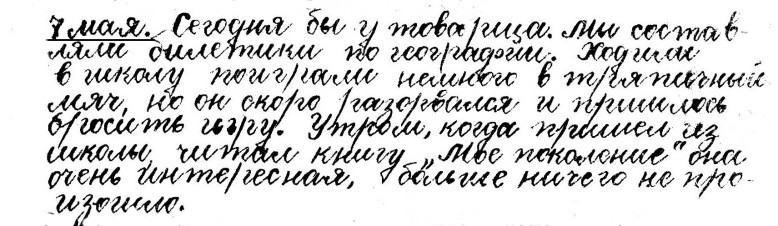 7 мая. Сегодня бы у товарища. Мы состав-
ляли билетики по географии. Ходили
в школу поиграли немного в тряпичный
мяч, но он скоро разорвался и пришлось
бросить игру. Утром, когда пришел из
школы, читал книгу „Мое поколение" она
очень интересная, больше ничего не про-
изошло.